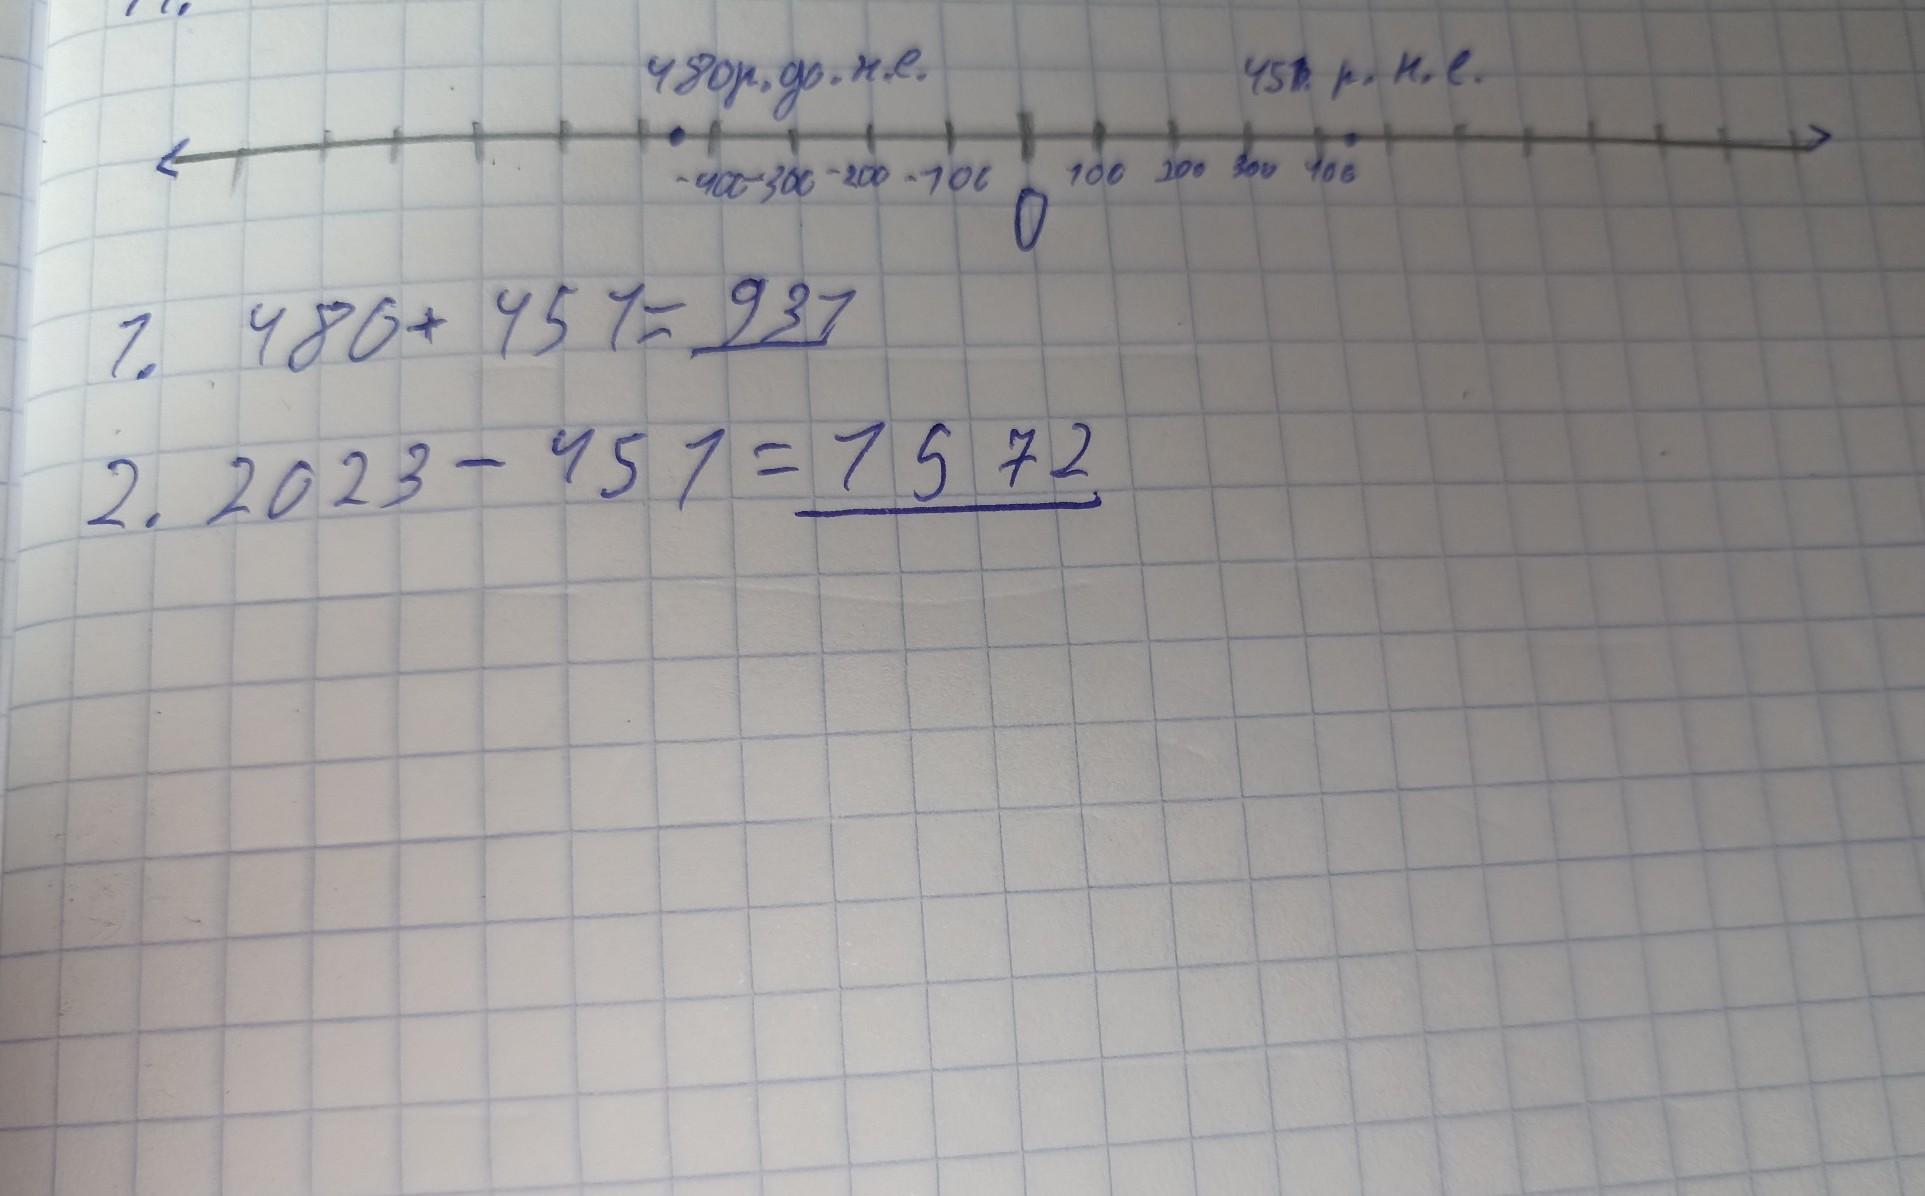 480р. до. н.е. 451 р. н.е.
-400 -300 -200 -100 0 100 200 300 400
1. 480+ 451= 931
2. 2023 - 451 = 1572